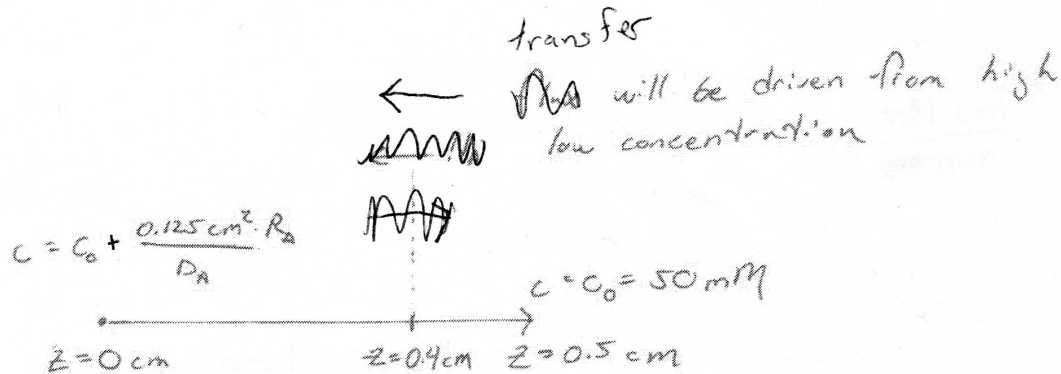 transfer
will be driven from high
low concentration
C = C₀ + 0.125 cm² · R_A / D_A
C = C₀ = 50 mM
Z = 0 cm
Z = 0.4 cm
Z = 0.5 cm